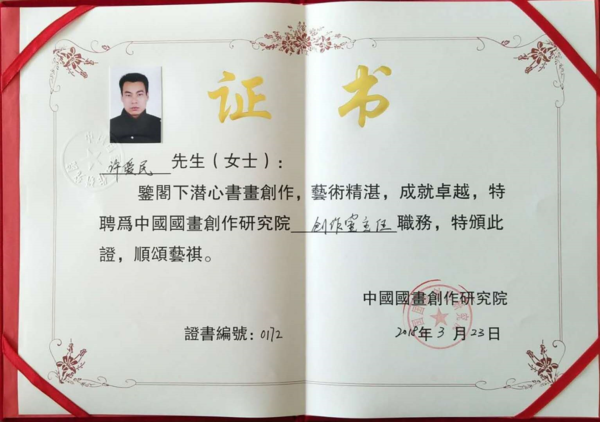 证 书
许爱民 先生（女士）：
鑒閣下潜心書畫創作，藝術精湛，成就卓越，特
聘爲中國國畫創作研究院 创作室主任 職務，特頒此
證，順頌藝祺。
中國國畫創作研究院
證書編號：0172
2018年3月23日